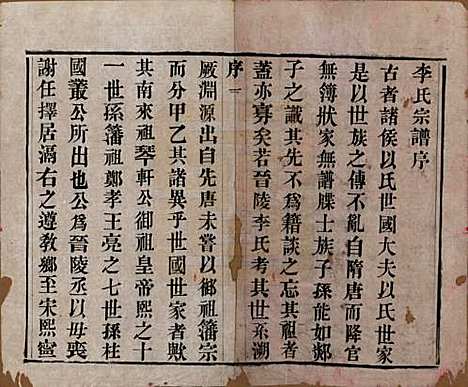 李氏宗譜序
古者諸侯以氏世國大夫以氏世家
是以世族之傳不亂自隋唐而降官
無簿狀家無譜牒士族子孫能如郯
子之識其先不爲籍談之忘其祖者
蓋亦寡矣若晉陵李氏考其世系溯
序 一
厥淵源出自先唐未嘗以鄉藩宗
而分甲乙其諸異乎世國世家者歟
其南來祖琴軒公御祖皇帝熙之十
一世孫藩祖鄭孝王亮之七世孫柱
國叢公所出也公爲晉陵丞以毋喪
謝任擇居滆右之遵教鄉至宋熙寧